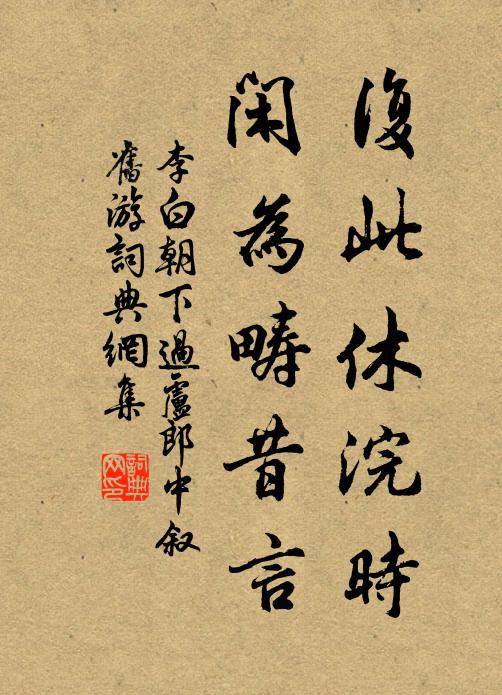 復此休浣時
閑為疇昔言
李白朝下過盧郎中叙
舊游詞典網集
詞典
网印